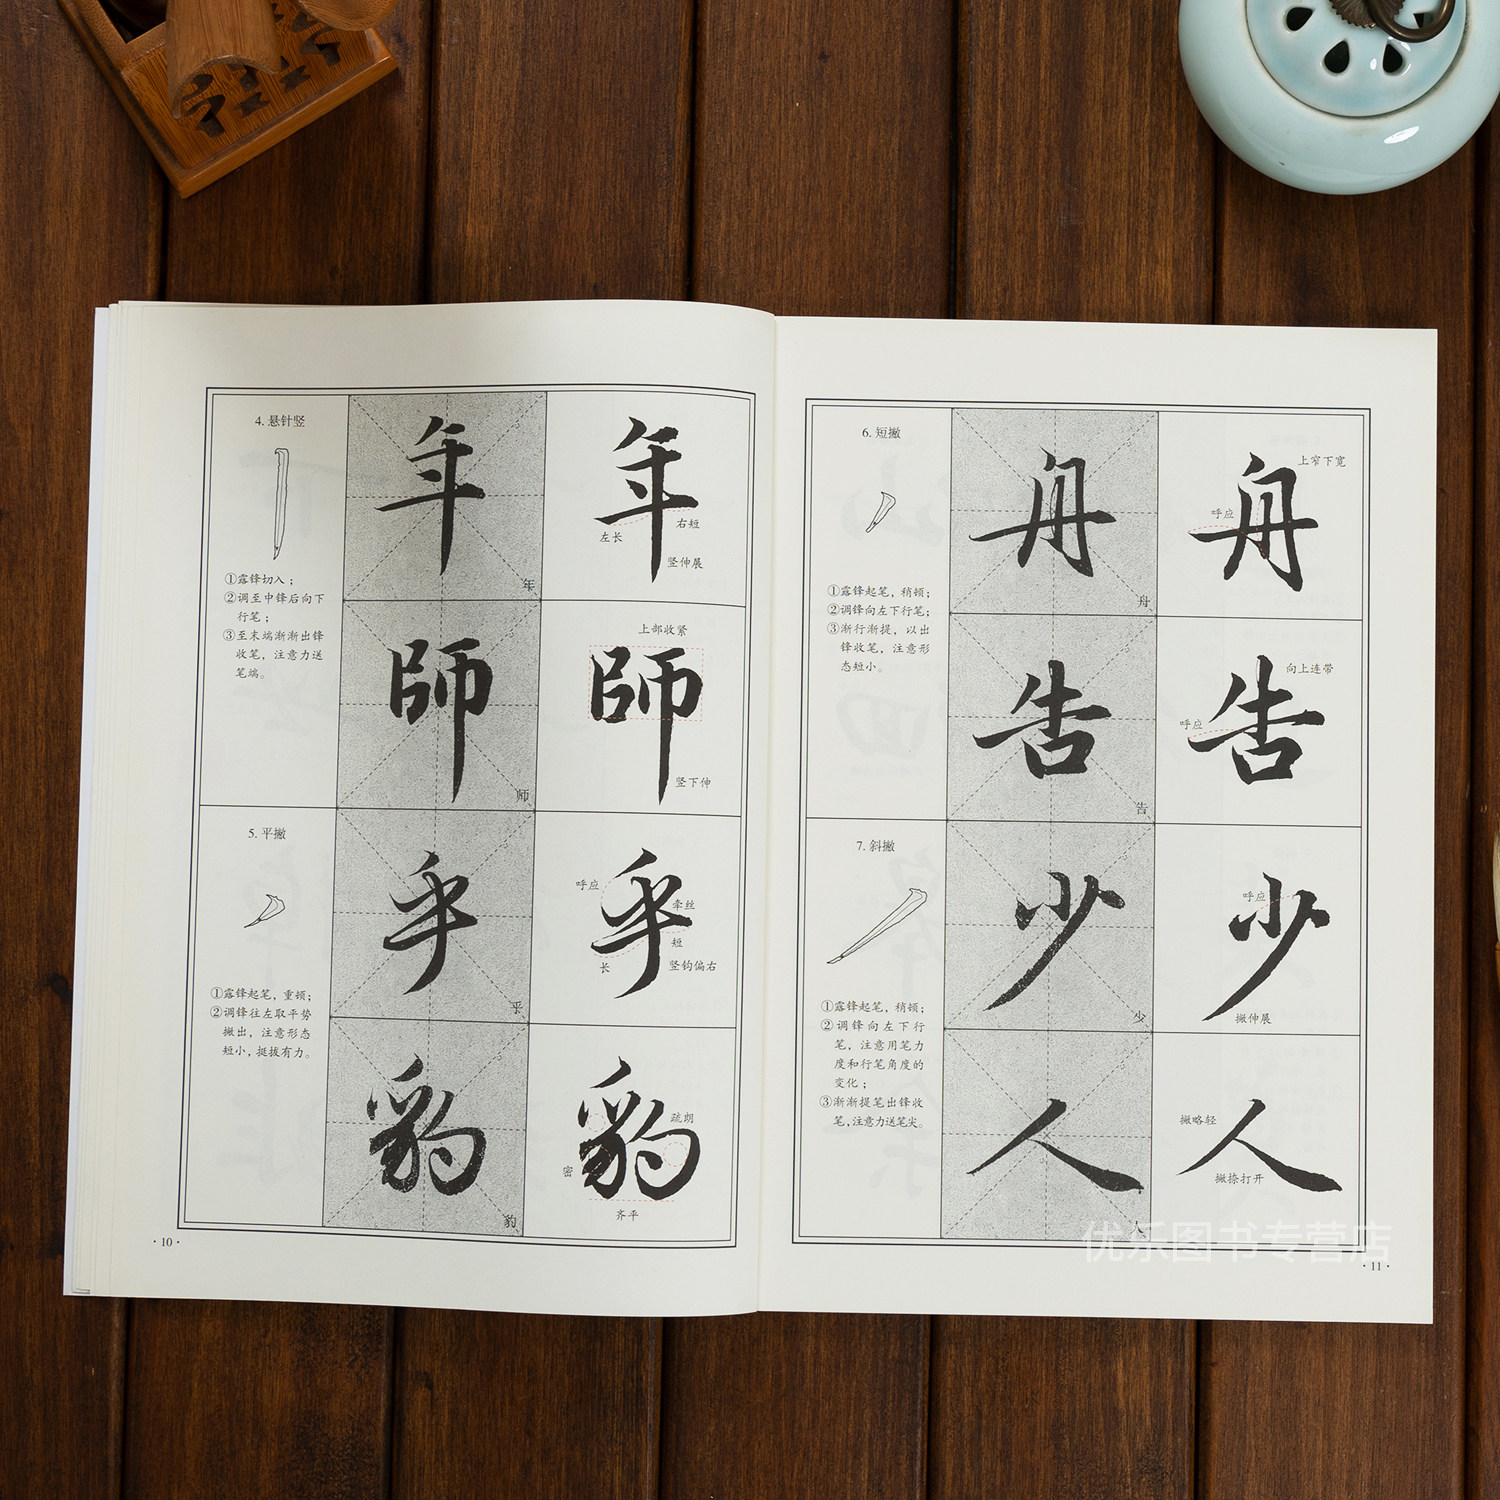 4. 悬针竖
①露锋切入；
②调至中锋后向下
行笔；
③至末端渐渐出锋
收笔，注意力送
笔端。
年
年
左长
右短
竖伸展
年
師
上部收紧
師
竖下伸
师
5. 平撇
①露锋起笔，重顿；
②调锋往左取平势
撇出，注意形态
短小，挺拔有力。
乎
呼应
乎
牵丝
短
长
竖钩偏右
乎
豹
豹
疏朗
密
齐平
豹
·10·
6. 短撇
①露锋起笔，稍顿；
②调锋向左下行笔；
③渐行渐提，以出
锋收笔，注意形
态短小。
舟
上窄下宽
呼应
舟
舟
告
向上连带
呼应
告
告
7. 斜撇
①露锋起笔，稍顿；
②调锋向左下行
笔，注意用笔力
度和行笔角度的
变化；
③渐渐提笔出锋收
笔，注意力送笔尖。
少
呼应
少
撇伸展
少
人
撇略轻
人
撇捺打开
人
·11·
优乐图书专营店